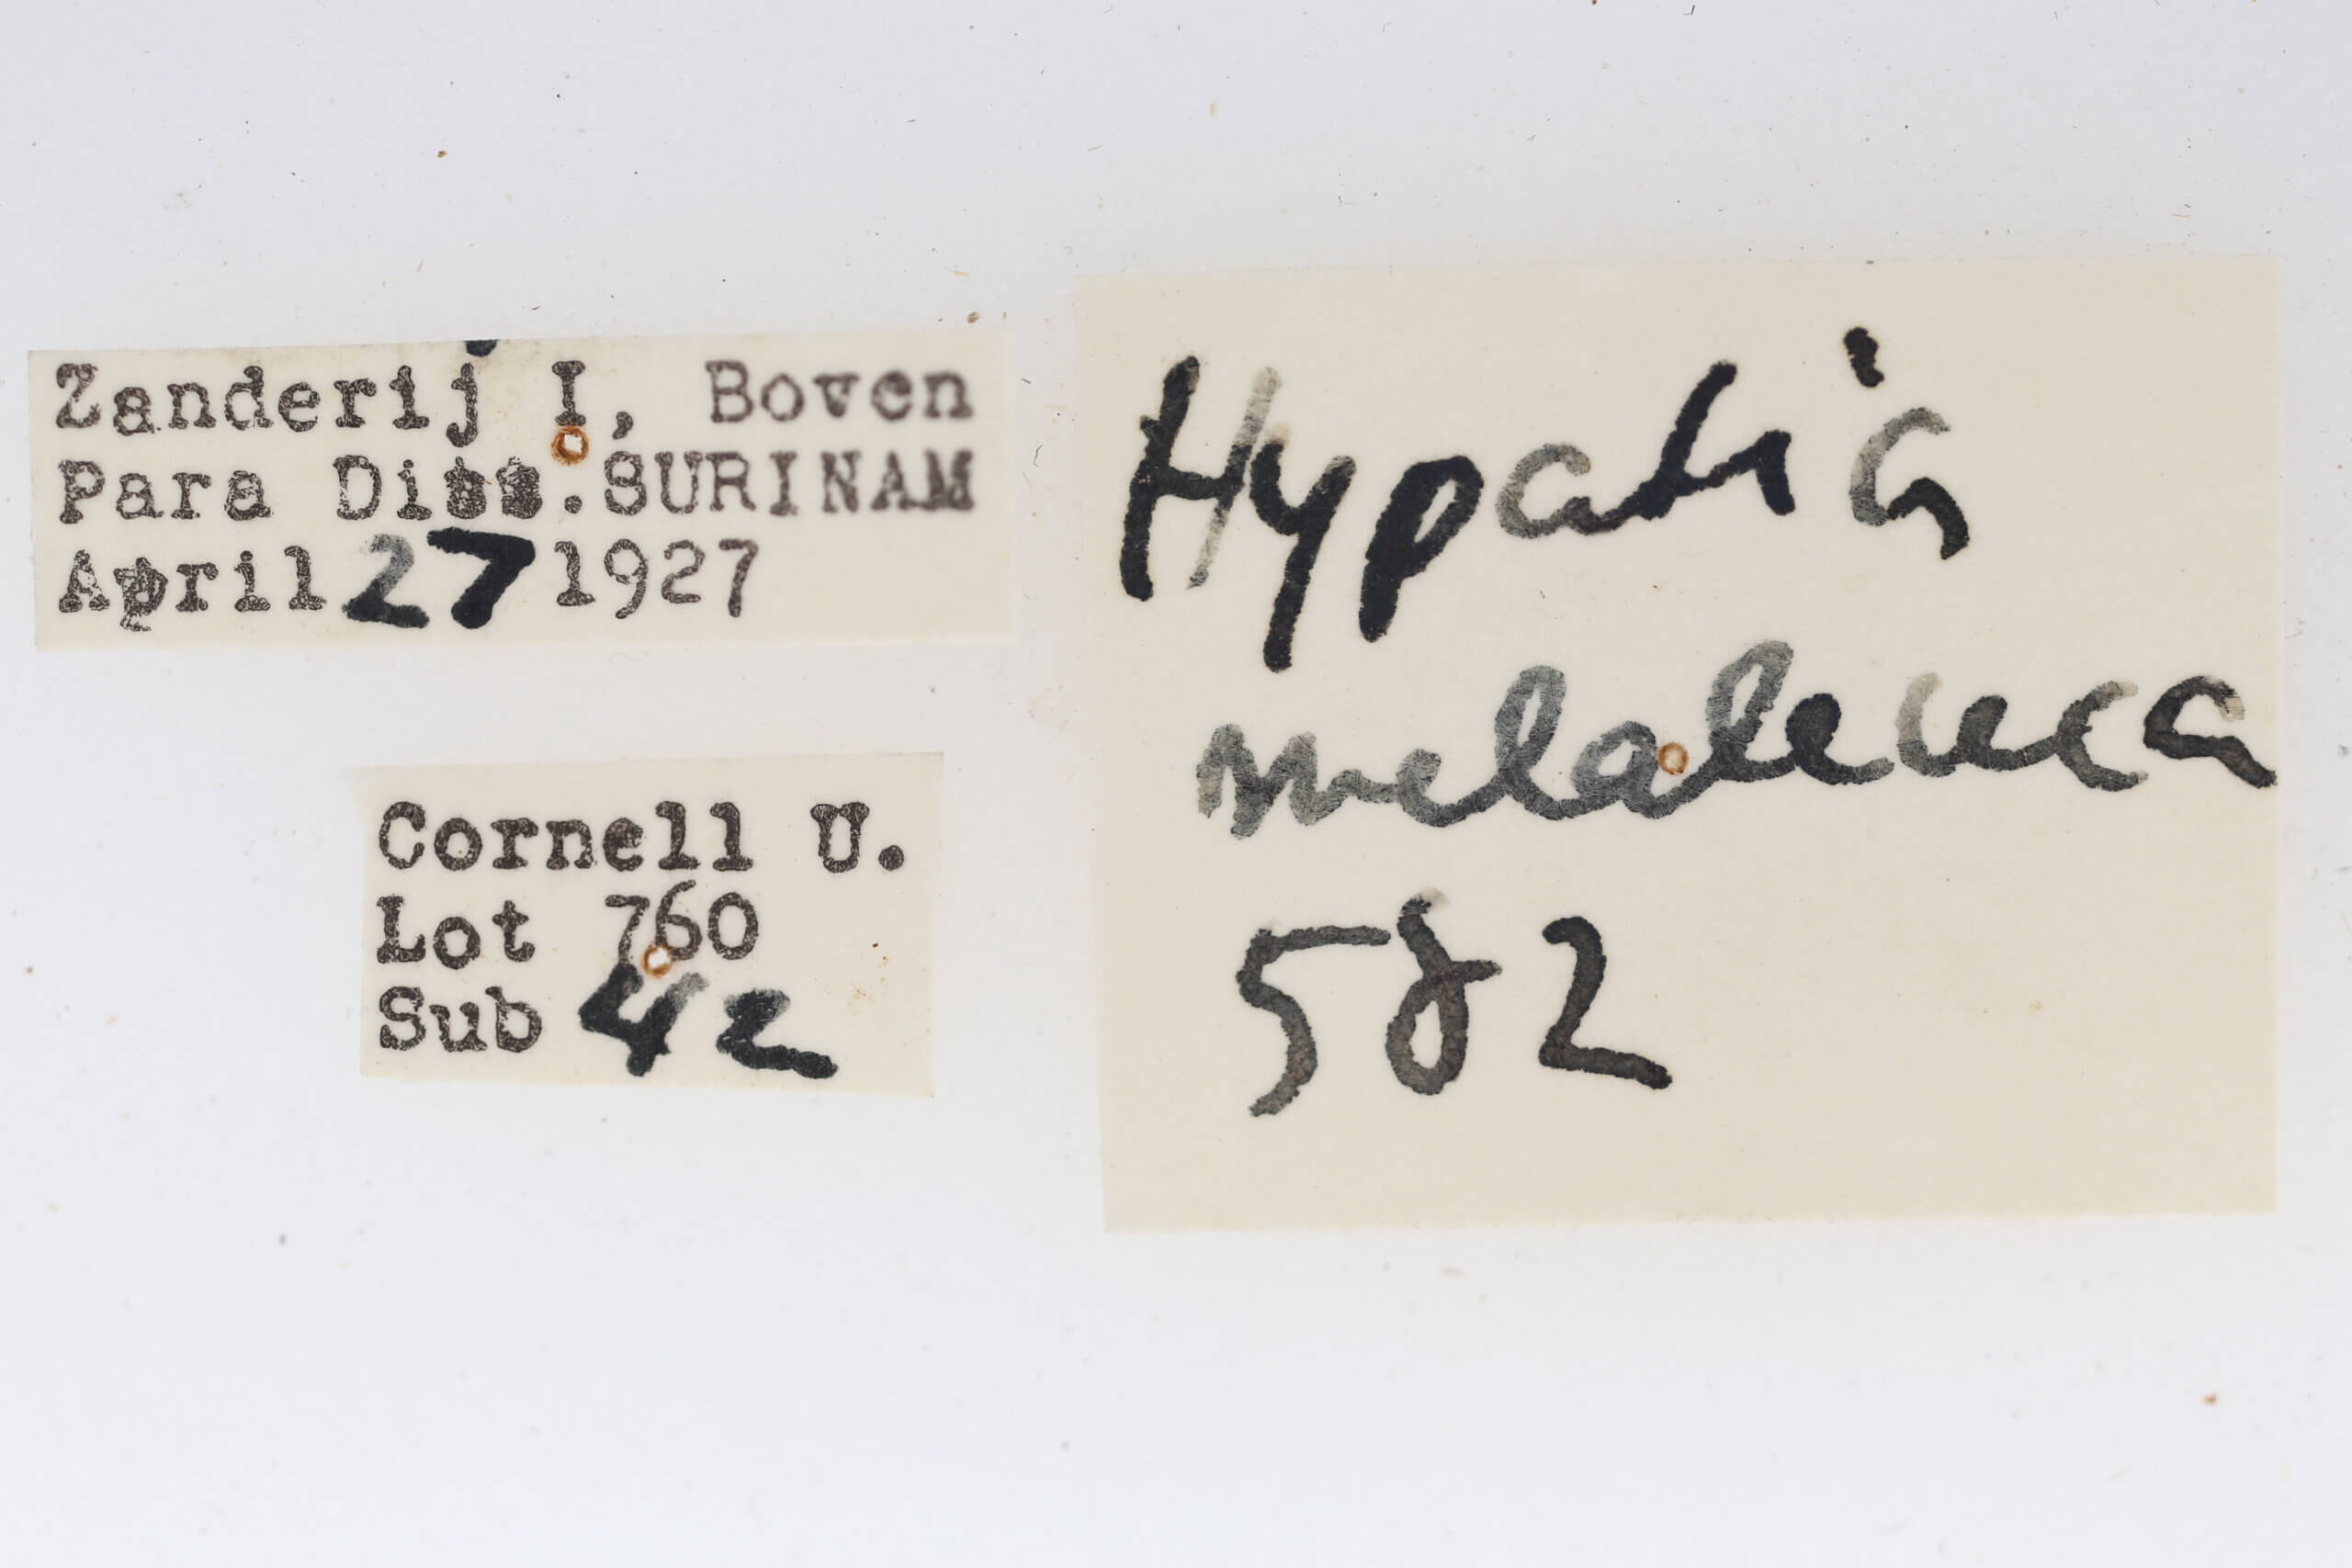 Zanderij I, Boven
Para Diss. SURINAM
April 27 1927
Cornell U.
Lot 760
Sub 42
Hypatia
melaleuca
582